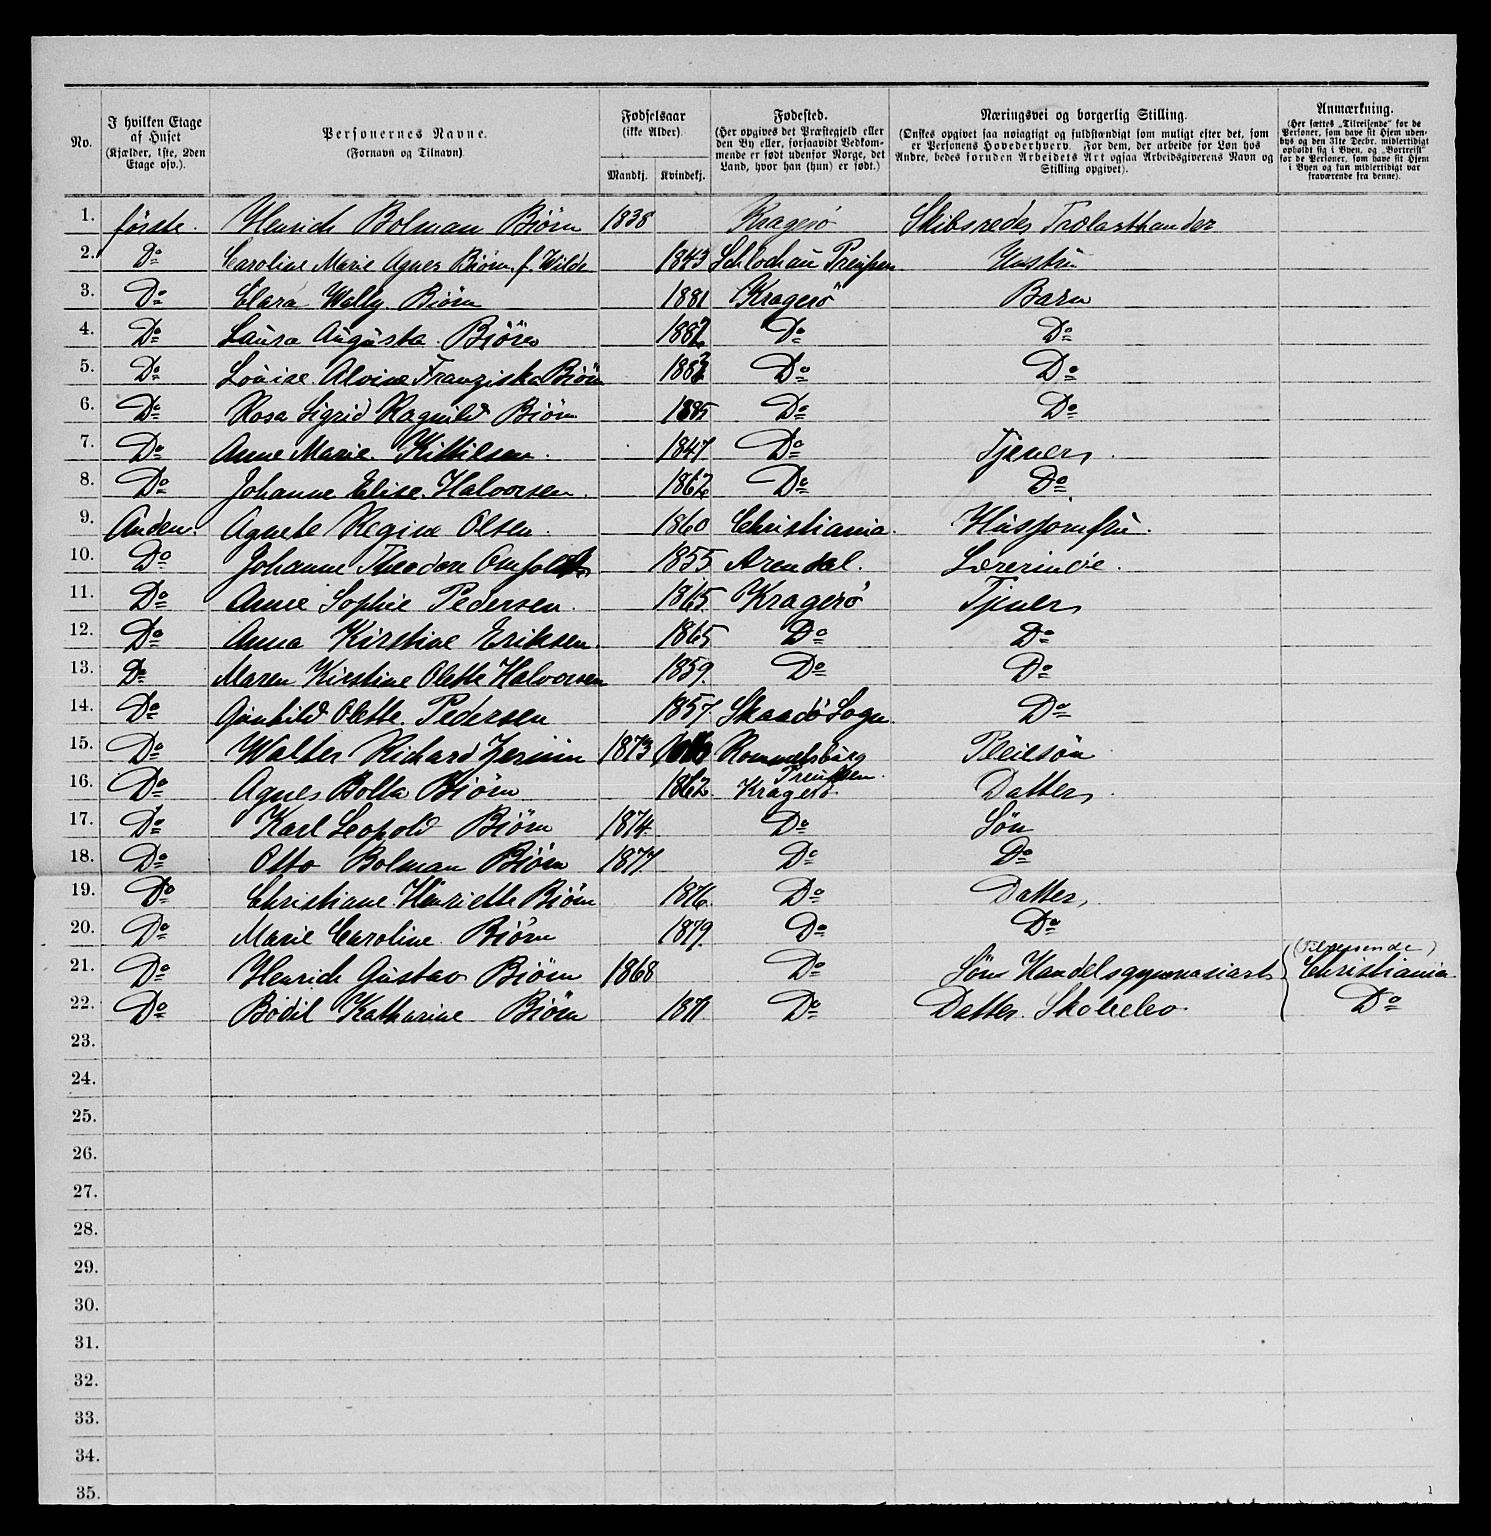 No. | I hvilken Etage af Huset (Kjælder, 1ste, 2den Etage osv.). | Personernes Navne. (Fornavn og Tilnavn) | Fødselsaar (ikke Alder). Mandkj. | Kvindekj. | Fødested. (Her opgives det Præstegjeld eller den By eller, forsaavidt Vedkommende er født udenfor Norge, det Land, hvor han (hun) er født.) | Næringsvei og borgerlig Stilling. (Ønskes opgivet saa nøiagtigt og fuldstændigt som muligt efter det, som er Personens Hovederhverv. For dem, der arbeide for Løn hos Andre, bedes foruden Arbeidets Art ogsaa Arbeidsgiverens Navn og Stilling opgivet). | Anmærkning. (Her sættes „Tilreisende“ for de Personer, som have sit Hjem udenbys og den 31te Decbr. midlertidigt opholdt sig i Byen, og „Bortreist“ for de Personer, som have sit Hjem i Byen og kun midlertidigt var fraværende fra denne).
1. første. Henrich Bolman Biørn 1838 Kragerø Skibsreder Trælasthandler
2. Do Caroline Marie Agnes Biørn f. Wilde 1843 Schlochau Preussen Hustru
3. Do Clara Welly Biørn 1881 Kragerö Barn
4. Do Laura Augusta Biörn 1882 Do Do
5. Do Louise Alvine Franziska Biörn 1883 Do Do
6. Do Rosa Sigrid Ragnild Biörn 1885 Do Do
7. Do Anne Marie Kittilsen. 1847. Do Tjener.
8. Do Johanne Elise Halvorsen. 1862 Do Do
9. Anden. Agnete Regine Olsen. 1860 Christiania. Husjomfru.
10. Do Johanne Theodore 1855 Arendal. Lærerinde.
11. Do Anne Sophie Pedersen. 1865. Kragerö Tjener
12. Do Anna Kirstine Eriksen. 1865 Do Do
13. Do Maren Kirstine Olette Halvorsen 1859. Do Do
14. Do Gunhild Olette Pedersen 1857. Skaadö Sogn. Do
15. Do Walter Richard 1873 Rommelsburg Preussen. Pleiesön
16. Do Agnes Bolla Biörn 1862. Kragerö Datter.
17. Do Karl Leopold Biörn 1874. Do Sön
18. Do Otto Bolman Biörn 1877. Do Do
19. Do Christiane Henriette Biörn 1876. Do Datter.
20. Do Marie Caroline Biörn 1879. Do Do
21. Do Henrich Gustav Biörn 1868 Do Sön Handelsgymnasiast (Tilreisende) Christiania.
22. Do Bodil Katharine Biörn 1871 Do Datter. Skoleelev Do
23.
24.
25.
26.
27.
28.
29.
30.
31.
32.
33.
34.
35.